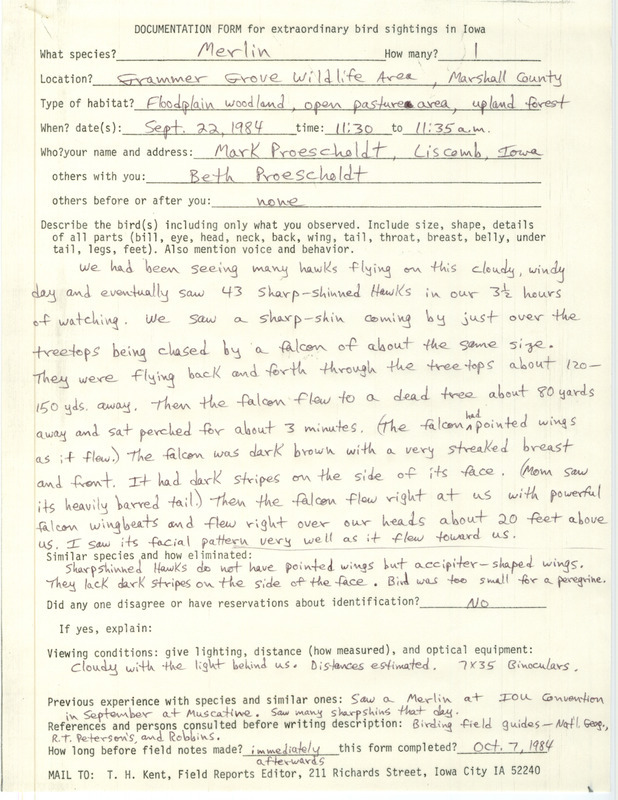 DOCUMENTATION FORM for extraordinary bird sightings in Iowa
What species? Merlin How many? 1
Location? Grammer Grove Wildlife Area, Marshall County
Type of habitat? Floodplain woodland, open pasture area, upland forest
When? date(s): Sept. 22, 1984 time: 11:30 to 11:35 a.m.
Who?your name and address: Mark Proescholdt, Liscomb, Iowa
others with you: Beth Proescholdt
others before or after you: none
Describe the bird(s) including only what you observed. Include size, shape, details
of all parts (bill, eye, head, neck, back, wing, tail, throat, breast, belly, under
tail, legs, feet). Also mention voice and behavior.
We had been seeing many hawks flying on this cloudy, windy
day and eventually saw 43 Sharp-shinned Hawks in our 3½ hours
of watching. We saw a sharp-skin coming by just over the
treetops being chased by a falcon of about the same size.
They were flying back and forth through the treetops about 120-
150 yds. away. Then the falcon flew to a dead tree about 80 yards
away and sat perched for about 3 minutes. (The falcon had pointed wings
as it flew.) The falcon was dark brown with a very streaked breast
and front. It had dark stripes on the side of its face. (Mom saw
its heavily barred tail.) Then the falcon flew right at us with powerful
falcon wingbeats and flew right over our heads about 20 feet above
us. I saw its facial pattern very well as it flew toward us.
Similar species and how eliminated:
Sharpshinned Hawks do not have pointed wings but accipiter-shaped wings.
They lack dark stripes on the side of the face. Bird was too small for a peregrine.
Did any one disagree or have reservations about identification? No
If yes, explain:
Viewing conditions: give lighting, distance (how measured), and optical equipment:
Cloudy with the light behind us. Distances estimated. 7x35 Binoculars.
Previous experience with species and similar ones: Saw a Merlin at IOU Convention
in September at Muscatine. Saw many sharpshins that day.
References and persons consulted before writing description: Birding field guides - Natl. Geog.,
R.T. Peterson's, and Robbins.
How long before field notes made? immediately this form completed? Oct. 7, 1984
afterwards
MAIL TO: T. H. Kent, Field Reports Editor, 211 Richards Street, Iowa City IA 52240